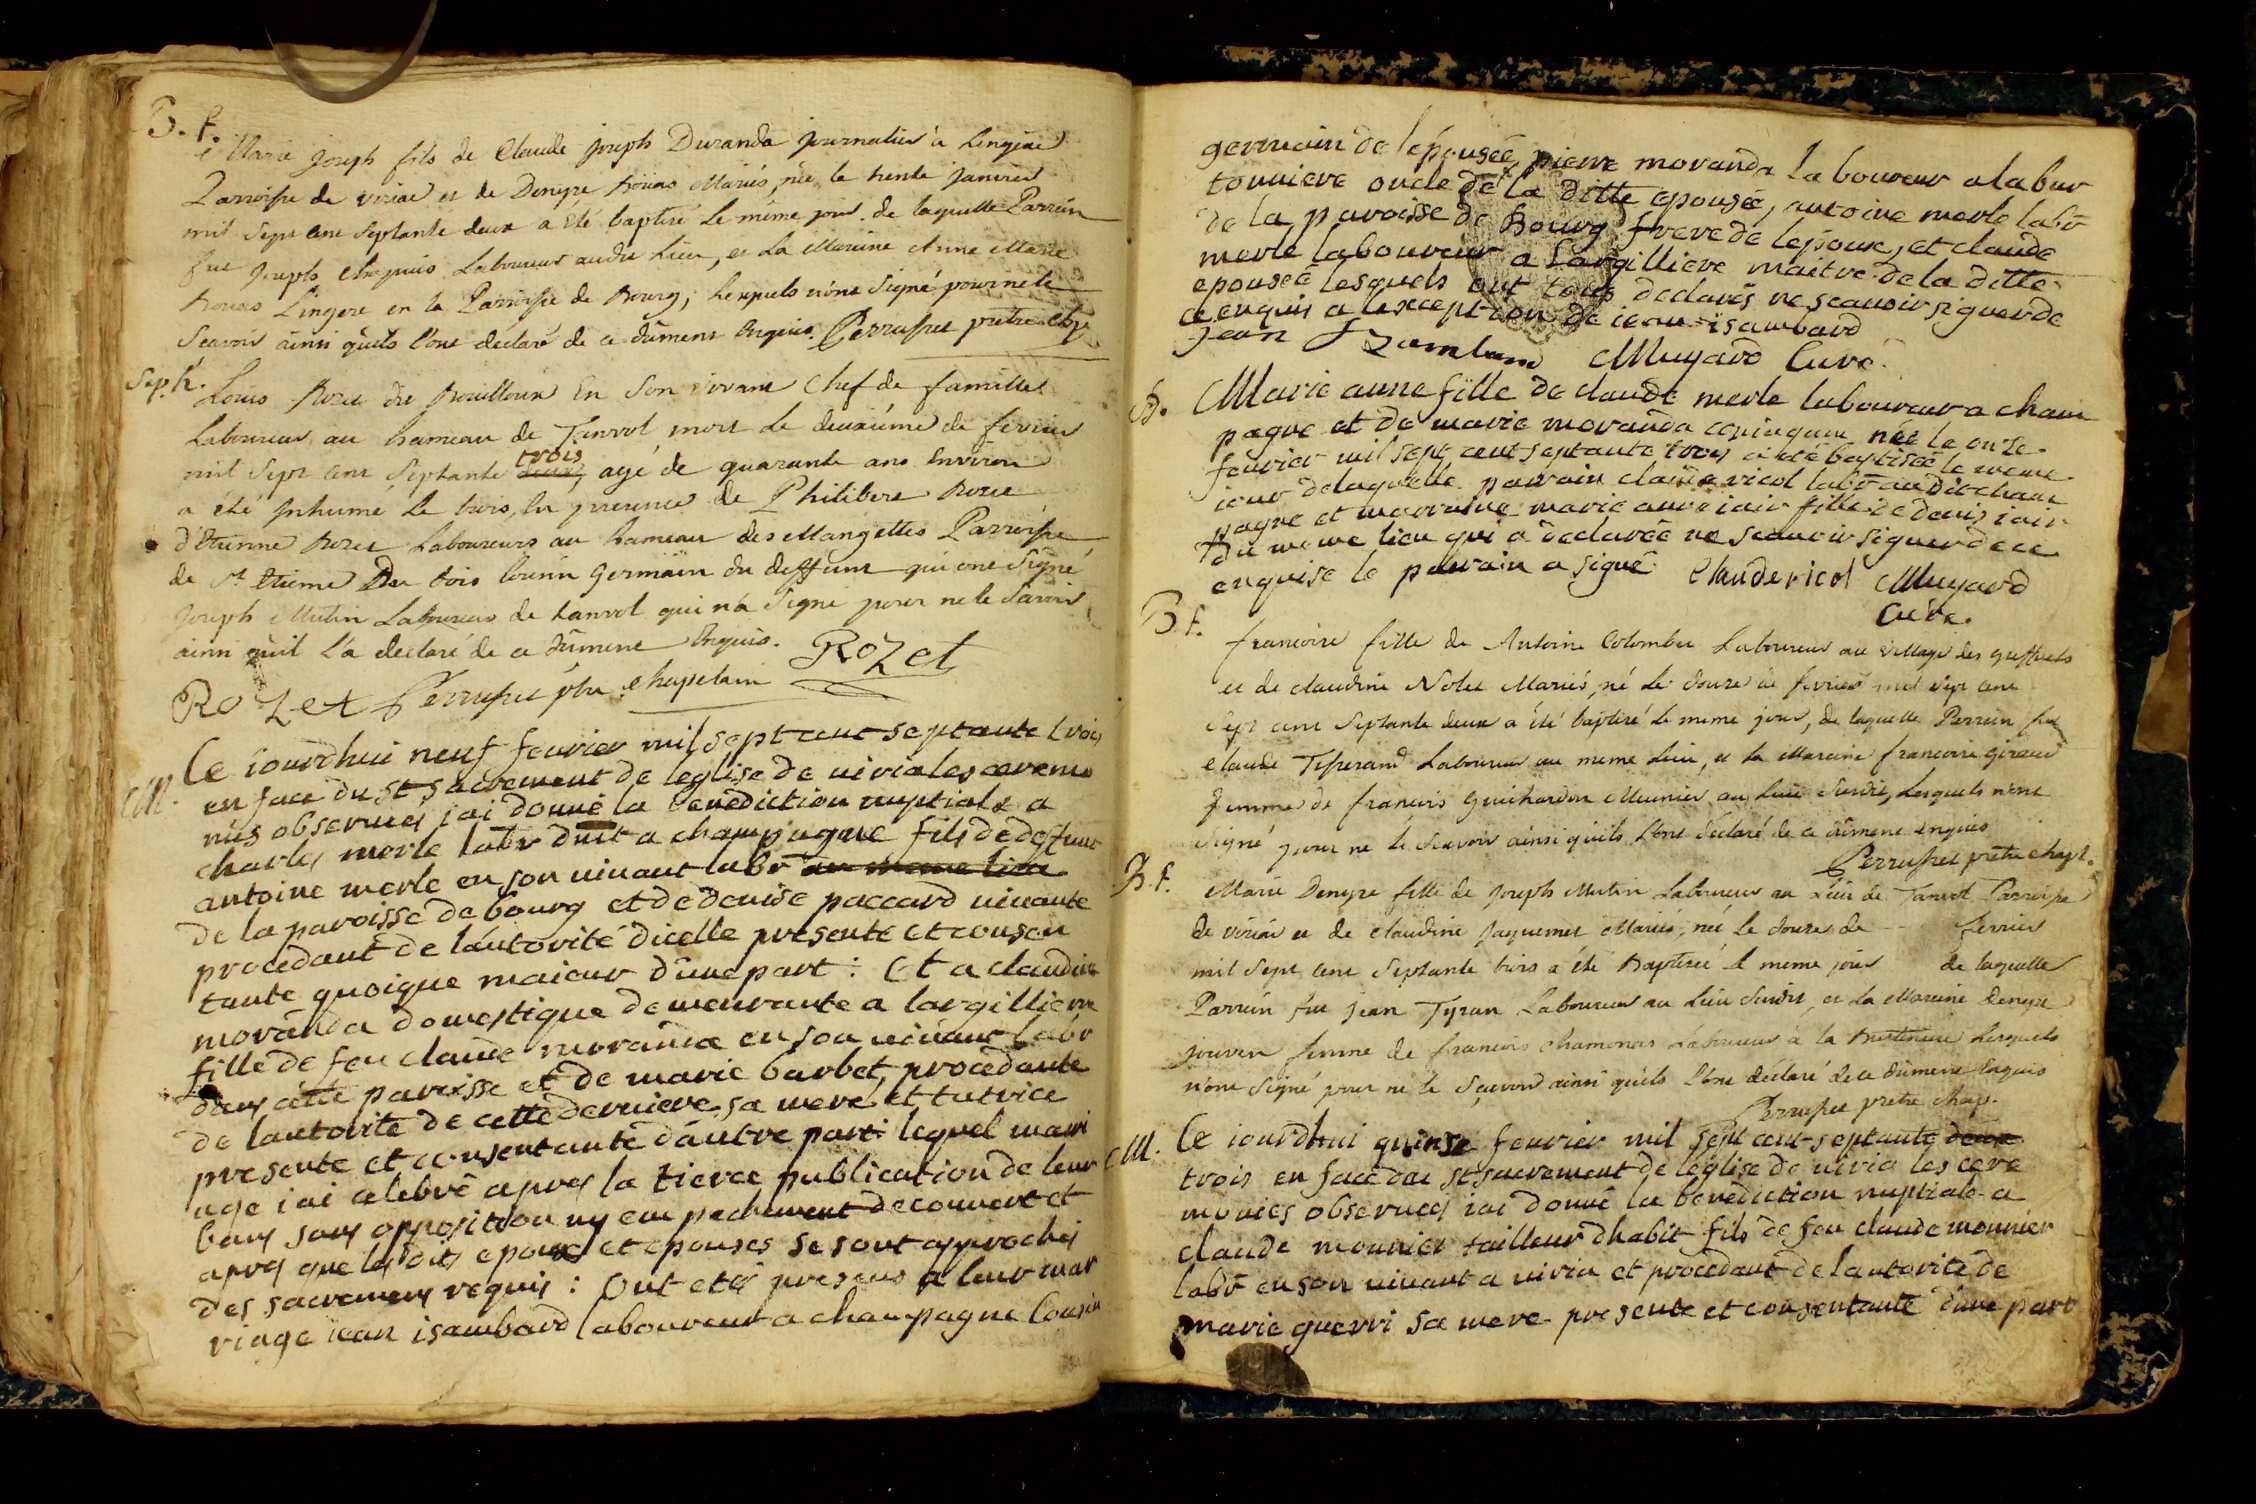 B. f.
Marie Joseph fils de Claude joseph Duranda journalier à Lingiat
Parroisse de viriat et de Denyse Boüas Mariés, née le trente janvier
mil sept cent septante deux a été baptisé le même jour. de laquelle Parrein
fut Joseph Chapuis Laboureur audit Lieu, et La Mareine Anne Marie
Bouas Lingere en la Parroisse de Bourg; lesquels n'ont signé pour ne le
scavoir ainsi qu'ils l'ont déclaré de ce dûment enquis. Perruquet prêtre chp.
Sep.h.
Louis Rozet dit Bouilloux En son vivant Chef de famille
Laboureur au hameau de Tanvol mort le deuxiéme de fevrier
mil sept cent septante deux trois, agé de quarante ans environ
a été inhumé le trois, en presence de Philibert Rozet
d'Etienne Rozet Laboureurs au hameau des Mangettes Parroisse
de St Etienne Du bois cousin Germain du deffunt qui ont Signé
Joseph Mutin Laboureur de tanvol qui n'a Signé pour ne le Savoir
ainsi qu'il l'a declaré de ce dûment enquis. Rozet
Rozet Perruquet ptre chapelain
M. Ce iourdhui neuf feurier mil sept cent septante trois
en face du st sacrement de leglise de uiria les ceremo
nies obseruees iai donné la benediction nuptiale a
charles merle labr duit a champagne fils de deffunt
antoine merle en son uiuant labr au meme lieu
de la paroisse de bourg et de denise paccard uiuante
procedant de l'autorité dicelle presente et consen
tante quoique maieur d'une part: Et a claudine
moranda domestique demeurante a largilliere
fille de feu claude moranda en son uiuant labr
dans cette paroisse et de marie barbet, procedante
de lautorité de cette derniere sa mere et tutrice
presente et consentante dautre part lequel mari
age iai celebré apres la tierce publication de leur
bans sans opposition ny empechement decouvert et
apres que les dits epoux et epouses se sont approchés
des sacremens requis: Ont etés presens a leur mar
riage iean isambard laboureur a champagne Cousin
germain de lépousée, pierre moranda laboureur a la bur
tonniere oncle de la ditte epousée, antoine merle labr
de la paroisse de Bourg frere de lepoux, et claude
merle laboureur a Largilliere maitre de la ditte
epousée lesquels ont tous declarés ne scauoir signer de
ce enquis a lexception de iean isambard
Jean Izambard Mugard Curé
B. Marie anne fille de claude merle laboureur a cham
pagne et de marie moranda coniugum née le onze
feurier mil sept cent septante trois a été baptisée le meme
iour de laquelle parrain claude ricol labr audit cham
pagne et marraine marie anne iair fille de denis iair
du meme lieu qui a declarée ne scauoir signer de ce
enquise le parrain a signé. Claude ricol Mugard
Curé.
B. f.
francoise fille de Antoine Colomber Laboureur au village des greffets
et de claudine Nolet Mariés, né le douze de fevrier mil sept cent
sept cent septante deux a été baptisé le meme jour, de laquelle Perrein fut
claude Tisserand Laboureur au meme Lieu, et la Mareine francoise Giraud
femme de francois Guichardon Meunier au Lieu Susdit, lesquels n'ont
signé pour ne le Scavoir ainsi qu'ils l'ont déclaré de ce dûment enquis
Perruquet prêtre chapl.
B. f.
Marie Denyse fille de Joseph Mutin Laboureur au Lieu de Tanvol Parroisse
de viriat et de claudine Jaquemet Mariés; née le douze de -- fevrier
mil sept cent septante trois a été Baptisée le meme jour de laquelle
Parrein fut Jean Tyran Laboureur au Lieu Susdit, et La Mareine Denyse
jouvent femme de francois chamonar Laboureur à la lesquels
n'ont signé pour ne le Sçavoir ainsi qu'ils l'ont déclaré de ce dûment enquis
Perruquet pretre chap.
M. Ce iourdhui quinse feurier mil sept cent septante deux
trois en face du st sacrement de leglise de uiria les cere
monies obseruees iai donné la benediction nuptiale a
claude mounier tailleur dhabit fils de feu claude mounier
labr en son uiuant a uiria et procedant de lautorité de
marie guerri sa mere presente et consentante d'une part